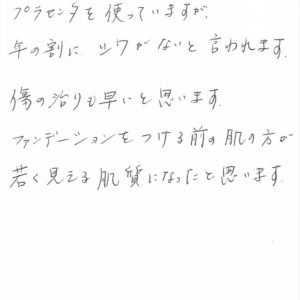 プラセンタを使っていますが、
年の割に、シワがないと言われます。
傷の治りも早いと思います。
ファンデーションをつける前の肌の方が
若く見える肌質になったと思います。